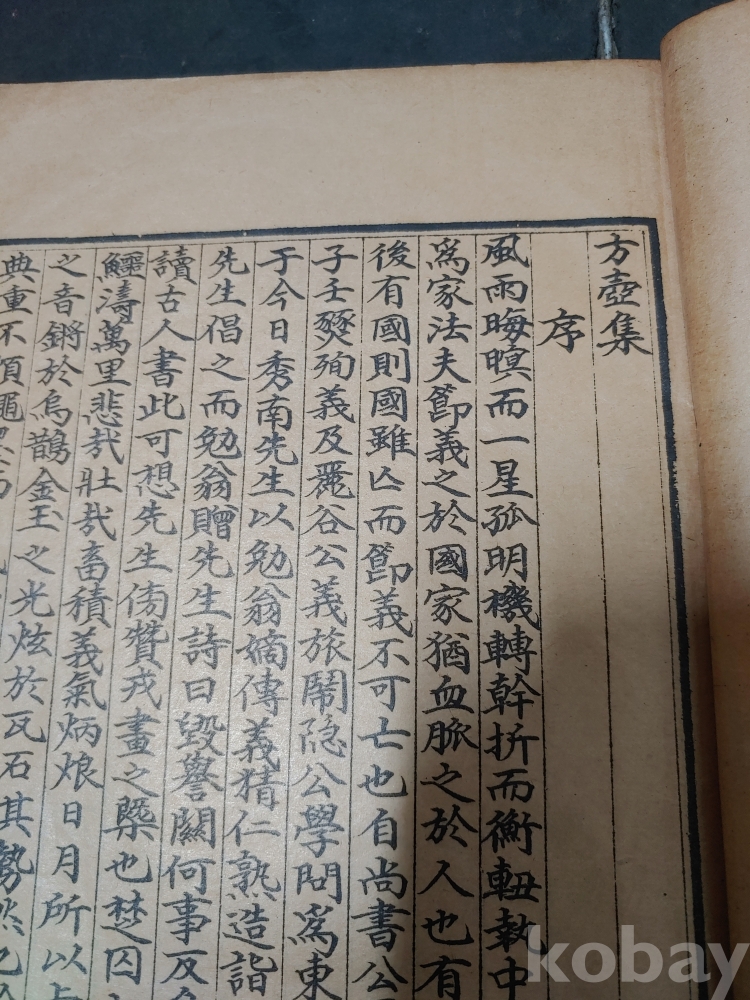 方壺集
序
風雨晦暝而一星孤明機轉幹折而衡軸執中
爲家法夫節義之於國家猶血脈之於人也有
後有國則國雖亾而節義不可亡也自尚書公
子壬燹殉義及麗谷公義旅鬧隐公學問爲東
于今日秀南先生以勉翁嫡傳義猜仁熟造詣
先生倡之而勉翁贈先生詩曰毀譽關何事反
讀古人書此可想先生傍贊戎畫之槩也楚囚
鱷濤萬里悲哉壯哉畜積義氣炳烺日月所以
之音鏘於烏鵲金玉之光炫於瓦石其勢然
典重不
kobay